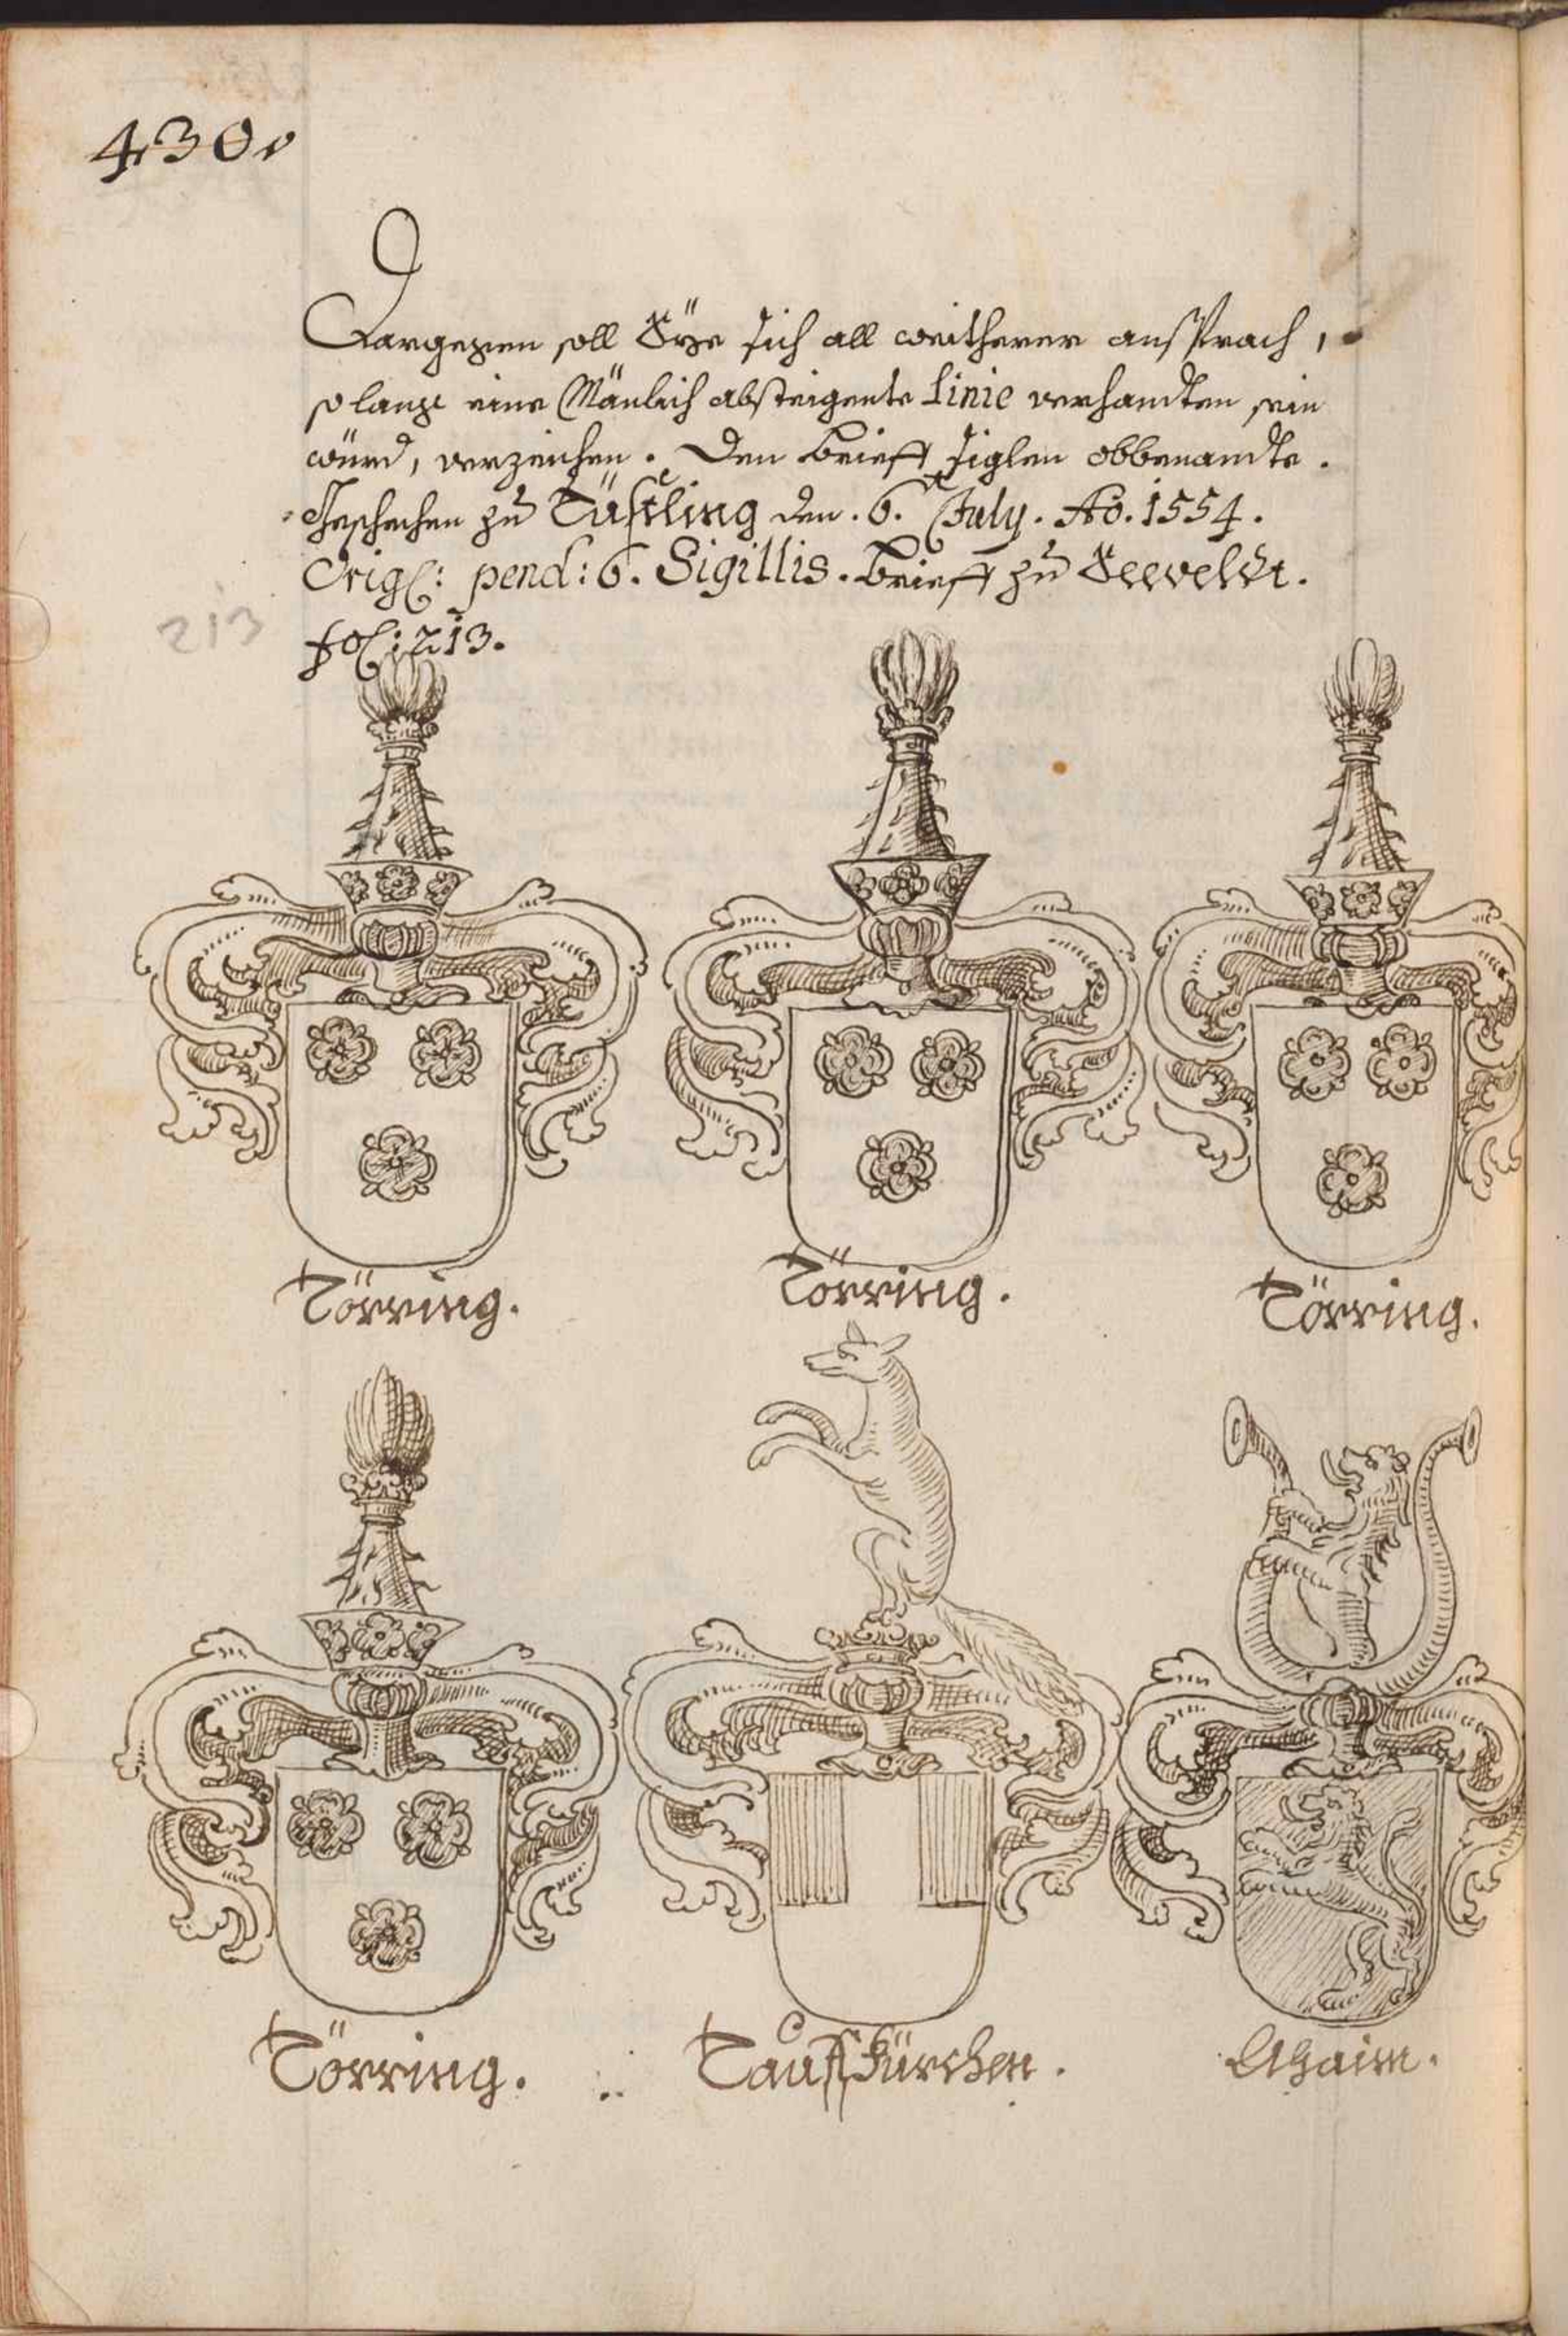 430.
Dargegen soll Sye sich all weitherer ansprach,
so lange eine Mänlich absteigente Linie verhandten sein
würd, verzeichen. Den brieff siglen obbenandte.
Geschechen zu Tüssling den. 6. July. Ao. 1554.
Orig: pend: 6. Sigillis. brieff zu Seeveldt.
213
fol: 213.
Törring.
Törring.
Törring.
Törring.
Tauffkürchen.
Ahaim.